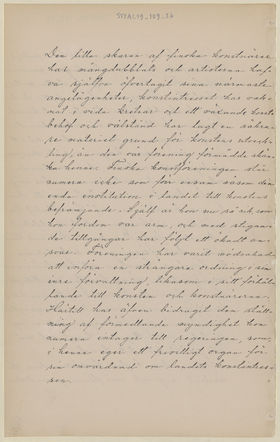 Den lilla skaran af finska konstnärer
har mångdubblats och artisterna haf-
va sjelfva öfvertagit sina närmaste
angelägenheter, konstintresset har vak-
nat i vida kretsar och ett växande konst
behof och välstånd har lagt en säkra-
re materiel grund för konstens utveck-
ling, än den vår förening förmådde skän-
ka henne. Finska konstföreningen står
numera icke som för ensam såsom den
enda institution i landet till konstens
befrämjande. Sjelf är hon nu så rik som
hon fordom var arm, och med stigan-
de tillgångar har följt ett ökadt an-
svar. Föreningen har varit nödsakad
att införa en strängare ordning i sin
inre förvaltning, liksom i sitt förhål-
lande till konsten och konstnärerna.
Härtill har äfven bidragit den ställ-
ning af förmedlande myndighet hon
numera intager till regeringen, som
i henne eger ett frivilligt organ för
sin omvårdnad om landets konstintres-
sen.